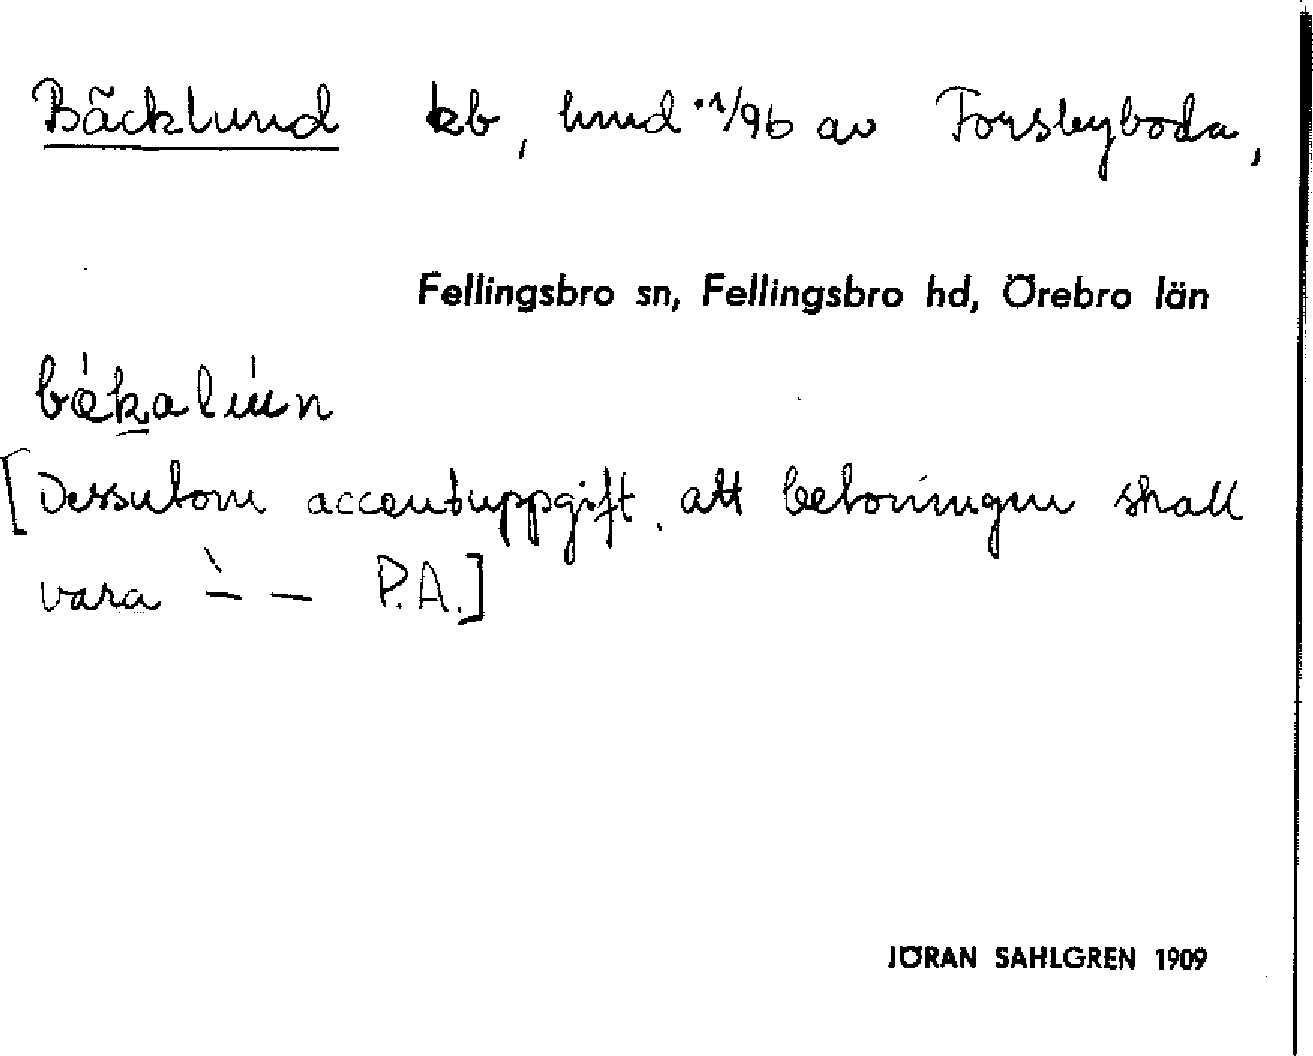 Bäcklund kb, hmd 1/96 av Forsbyboda,
Fellingsbro sn, Fellingsbro hd, Örebro län
[Dessutom accentuppgift, att betoningen skall
vara ̀– – P.A.]
JÖRAN SAHLGREN 1909